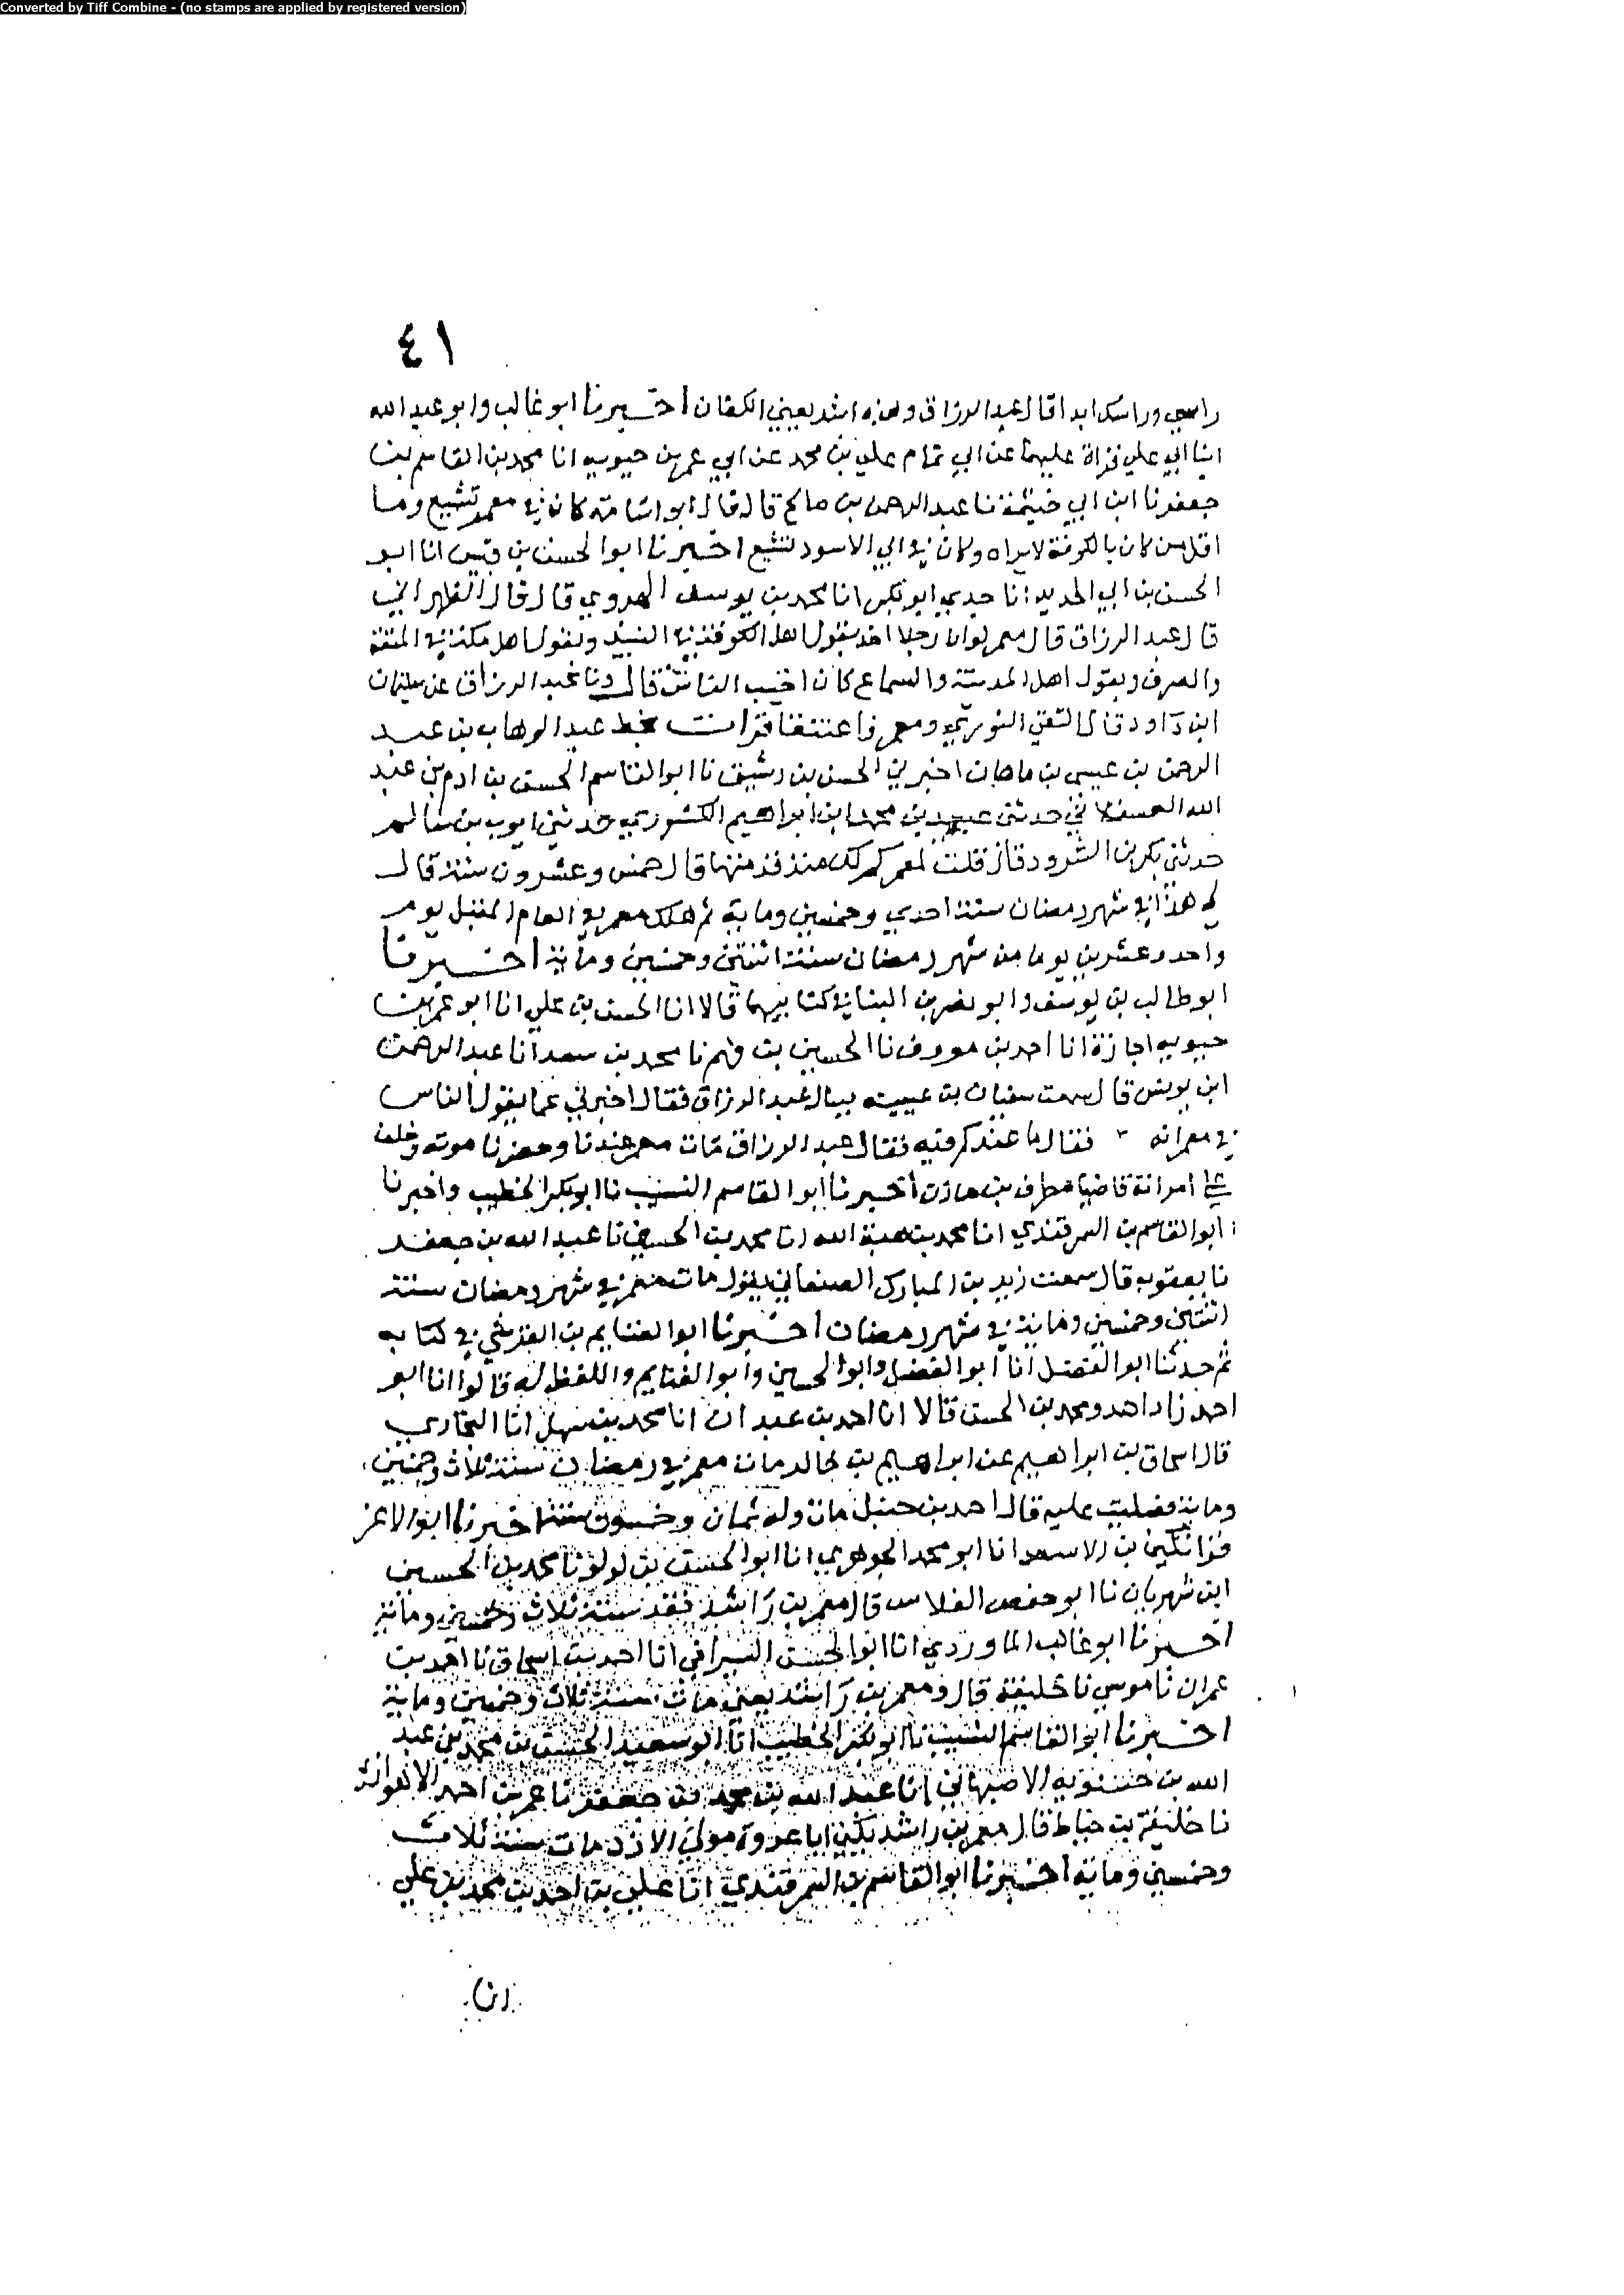 Converted by Tiff Combine - (no stamps are applied by registered version)
٤١
راسي وراسك ابدا قال عبد الرزاق وهذه اشد يعني الكفان اخبرنا ابو غالب وابو عبد الله
ابنا ابي علي قراة عليهما عن ابي تمام علي بن محمد عن ابي عمر بن حيويه انا محمد بن القاسم بن
جعفر نا ابن ابي خيثمة نا عبد الرحمن بن صالح قال قال ابو اسامة كان في معمر تشيع وما
اقل من كان بالكوفة لا يراه وكان في ابي الاسود تشيع اخبرنا ابو الحسن بن قبيس انا ابو
الحسن بن ابي الحديد انا جدي ابو بكر انا محمد بن يوسف الهروي قال قال الظهراني
قال عبد الرزاق قال معمر لو ان رجلا اخذ بقول اهل الكوفة في النبيذ وبقول اهل مكة في المتعة
والصرف وبقول اهل المدينة والسماع كان اخبث الناس قال ونا عبد الرزاق عن سليمان
ابن داود قال التقى الثوري ومعمر فاعتنقا قرات بخط عبد الوهاب بن عبد
الرحمن بن عيسى بن ماهان اخبرني الحسن بن رشيق نا ابو القاسم الحسن بن ادم بن عبد
الله العسقلاني حدثني عبيد بن محمد بن ابراهيم الكشوري حدثني ايوب بن سالم
حدثني بكر بن الشرود قال قلت لمعمر كم لك منذ قدمتها قال خمس وعشرون سنة قال
لي هذا في شهر رمضان سنة احدي وخمسين وماية ثم هلك معمر في العام المقبل يوم
واحد وعشرين يوما من شهر رمضان سنة اثنتين وخمسين وماية اخبرنا
ابو طالب بن يوسف وابو نصر بن البنا في كتابيهما قالا انا الحسن بن علي انا ابو عمر بن
حيويه اجازة انا احمد بن معروف نا الحسين بن فهم نا محمد بن سعد انا عبد الرحمن
ابن يونس قال سمعت سفيان بن عيينه يسال عبد الرزاق فقال اخبرني عما يقول الناس
في معمر انه فقد ما عندكم فيه فقال عبد الرزاق مات معمر عندنا وحضرنا موته وخلف
علي امراته قاضينا مطرف بن مازن اخبرنا ابو القاسم النسيب نا ابو بكر الخطيب واخبرنا
ابو القاسم بن السمرقندي انا محمد بن هبة الله انا محمد بن الحسين نا عبد الله بن جعفر
نا يعقوب قال سمعت زيد بن المبارك الصنعاني يقول مات معمر في شهر رمضان سنة
اثنتين وخمسين وماية في شهر رمضان اخبرنا ابو الغنايم بن النرسي في كتابه
ثم حدثنا ابو الفضل انا ابو الفضل وابو الحسين وابو الغنايم واللفظ له قالوا انا ابو
احمد زاد احمد ومحمد بن الحسن قالا انا احمد بن عبدان انا محمد بن سهل انا البخاري
قال اسحاق بن ابراهيم عن ابراهيم بن خالد مات معمر في رمضان سنة ثلاث وخمسين
وماية فصليت عليه قال احمد بن حنبل مات وله ثمان وخمسون سنة اخبرنا ابو الاعز
قراتكين بن الاسعد انا ابو محمد الجوهري انا ابو الحسن بن لولو نا محمد بن الحسين
ابن شهريان نا ابو حفص الفلاس قال معمر بن راشد فقد سنة ثلاث وخمسين وماية
اخبرنا ابو غالب الماوردي انا ابو الحسن السيرافي انا احمد بن اسحاق نا احمد بن
عمران نا موسى نا خليفة قال ومعمر بن راشد يعني مات سنة ثلاث وخمسين وماية
اخبرنا ابو القاسم النسيب نا ابو بكر الخطيب انا ابو سعيد الحسن بن محمد بن عبد
الله بن حسنويه الاصبهاني انا عبد الله بن محمد بن جعفر نا عمر بن احمد الاهوازي
نا خليفة بن خياط قال معمر بن راشد يكنى ابا عروة مولى الازد مات سنة ثلاث
وخمسين وماية اخبرنا ابو القاسم بن السمرقندي انا علي بن احمد بن محمد بن علي